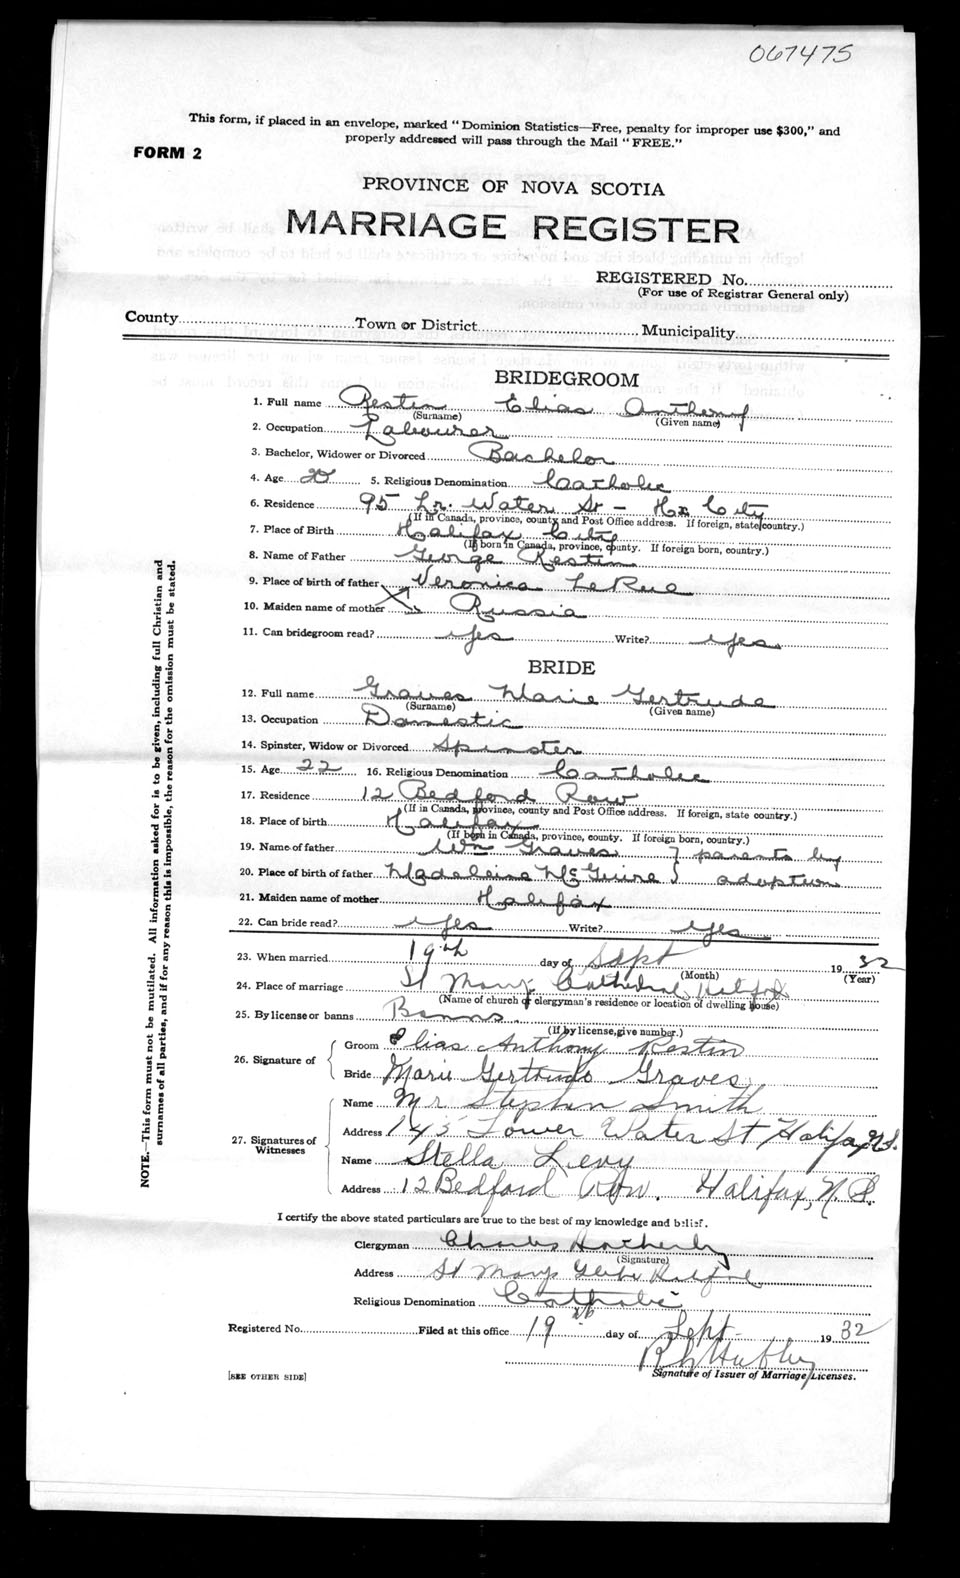 067475
This form, if placed in an envelope, marked "Dominion Statistics—Free, penalty for improper use $300," and
properly addressed will pass through the Mail "FREE."
FORM 2
PROVINCE OF NOVA SCOTIA
MARRIAGE REGISTER
REGISTERED No.
(For use of Registrar General only)
County Town or District Municipality
BRIDEGROOM
1. Full name Restin Elias Anthony
(Surname) (Given name)
2. Occupation Labourer
3. Bachelor, Widower or Divorced Bachelor
4. Age 20 5. Religious Denomination Catholic
6. Residence 95 Lr. Water St - Hx City
(If in Canada, province, county and Post Office address. If foreign, state country.)
7. Place of Birth Halifax City
(If born in Canada, province, county. If foreign born, country.)
8. Name of Father George Restin
9. Place of birth of father Veronica LeRue
10. Maiden name of mother Russia
11. Can bridegroom read? Yes Write? Yes
BRIDE
12. Full name Graves Marie Gertrude
(Surname) (Given name)
13. Occupation Domestic
14. Spinster, Widow or Divorced Spinster
15. Age 22 16. Religious Denomination Catholic
17. Residence 12 Bedford Row
(If in Canada, province, county and Post Office address. If foreign, state country.)
18. Place of birth Halifax
(If born in Canada, province, county. If foreign born, country.)
19. Name of father Wm Graves } parents by
20. Place of birth of father Madeleine McGuire } adoption
21. Maiden name of mother Halifax
22. Can bride read? Yes Write? Yes
23. When married 19th day of Sept 1932
(Month) (Year)
24. Place of marriage St Marys Cathedral Halifax
(Name of church or clergyman's residence or location of dwelling house)
25. By license or banns Banns
(If by license, give number.)
26. Signature of { Groom Elias Anthony Restin
Bride Marie Gertrude Graves
27. Signatures of Witnesses { Name Mr Stephen Smith
Address 145 Lower Water St Halifax N.S.
Name Stella Levy
Address 12 Bedford Row. Halifax, N.S.
I certify the above stated particulars are true to the best of my knowledge and belief.
Clergyman Charles
(Signature)
Address St Marys Glebe Halifax
Religious Denomination Catholic
Registered No. Filed at this office 19th day of Sept- 1932
Signature of Issuer of Marriage Licenses.
[SEE OTHER SIDE]
NOTE.—This form must not be mutilated. All information asked for is to be given, including full Christian and
surnames of all parties, and if for any reason this is impossible, the reason for the omission must be stated.